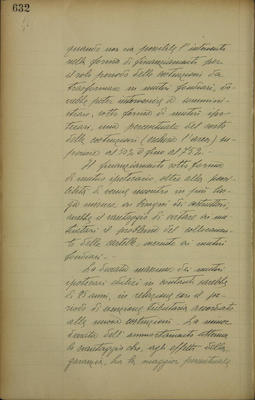 632
quando non sia possibile l'intervento
nella forma di finanziamento per
il solo periodo della costruzione da
trasformare in mutui fondiari, do-
vrebbe poter intervenire a sommini-
strare, sotto forma di mutui ipo-
tecari, una percentuale del costo
della costruzione (escluso l'area) su-
periore al 50% e fino al 75%.
Il finanziamento sotto forma
di mutuo ipotecario oltre alla possi-
bilità di venire incontro in più lar-
ga misura ai bisogni dei costruttori,
avrebbe il vantaggio di evitare ai mu-
tuatari il problema del collocamen-
to delle cartelle inerente ai mutui
fondiari. -
La durata massima dei mutui
ipotecari edilizi in contanti sarebbe
di 25 anni, in relazione con il pe-
riodo di esenzione tributaria accordato
alle nuove costruzioni. La minor
durata dell'ammortamento attenua
lo svantaggio che, agli effetti della
garanzia, ha la maggior percentuale